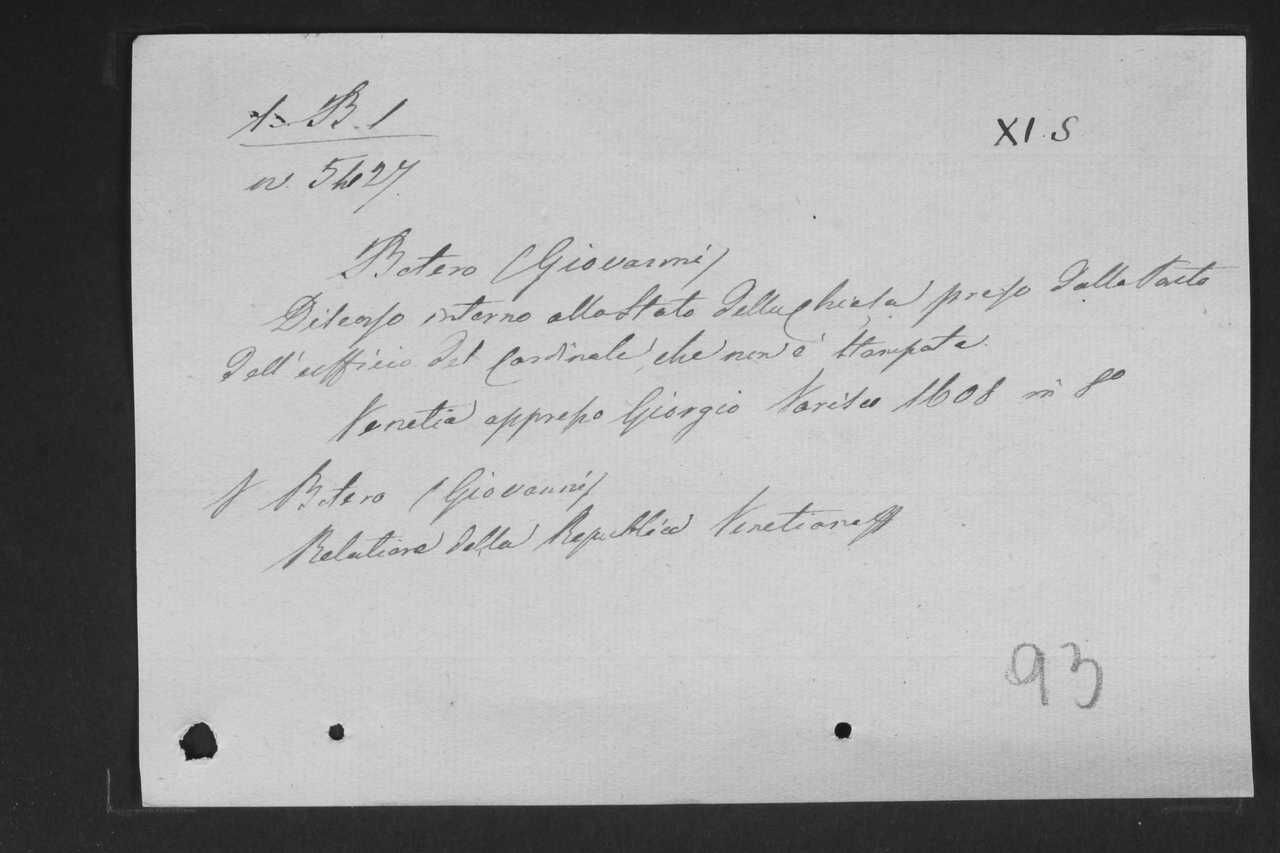 B. 1
XI. S
Botero (Giovanni)
Discorso intorno allo Stato della Chiesa preso dalla Parte
dell' ufficio del Cardinale, che non è stampata.
Venetia appresso Giorgio Varisco 1608 in 8º
Botero (Giovanni)
Relatione della Republica Venetiana
93